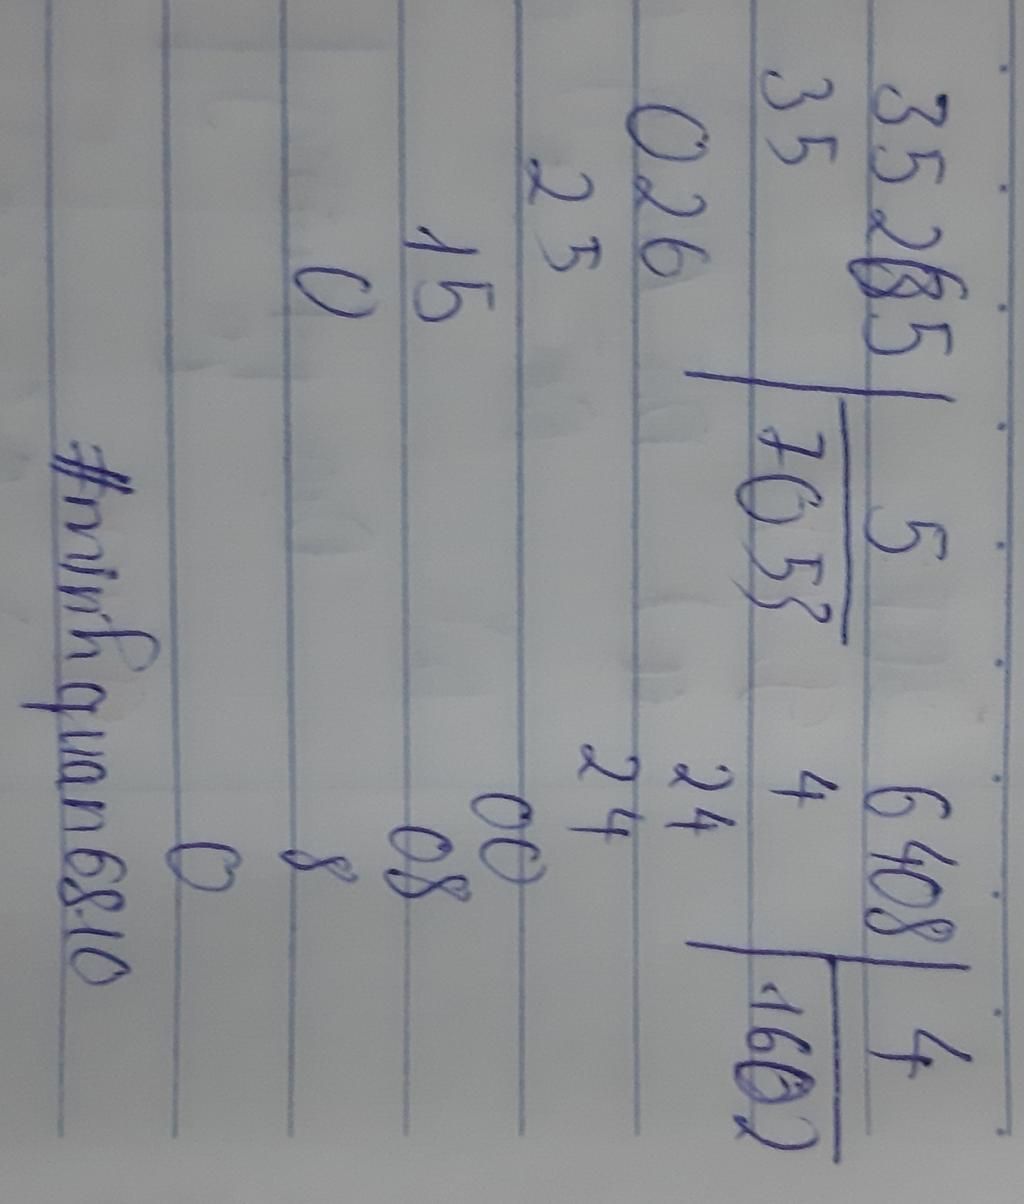 35265 5 6408 4
35 7053 4 1602
026 24
25 24
00
15 08
0 8
0
#minhquan6810